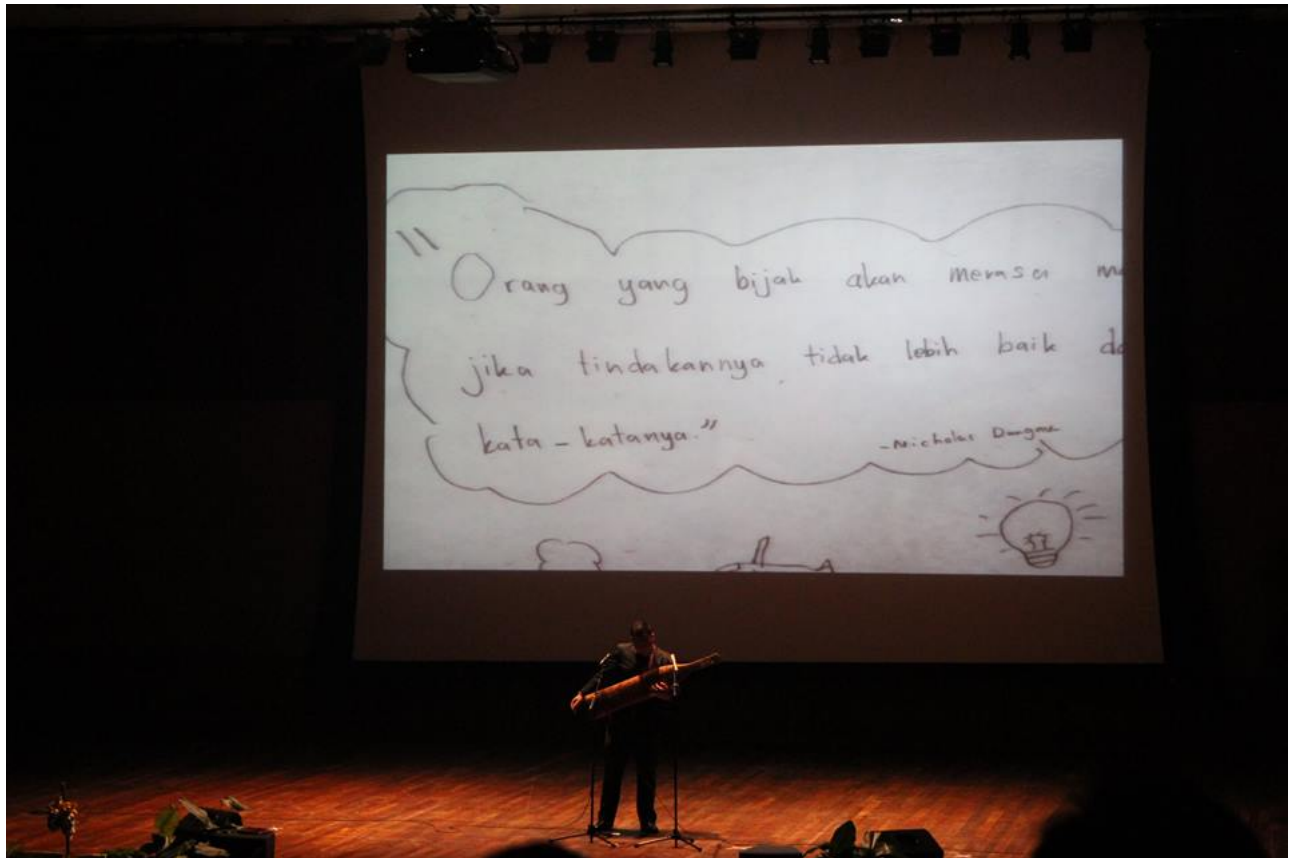 "Orang yang bijak akan merasa
jika tindakannya tidak lebih baik
kata-katanya."
-Nicholas